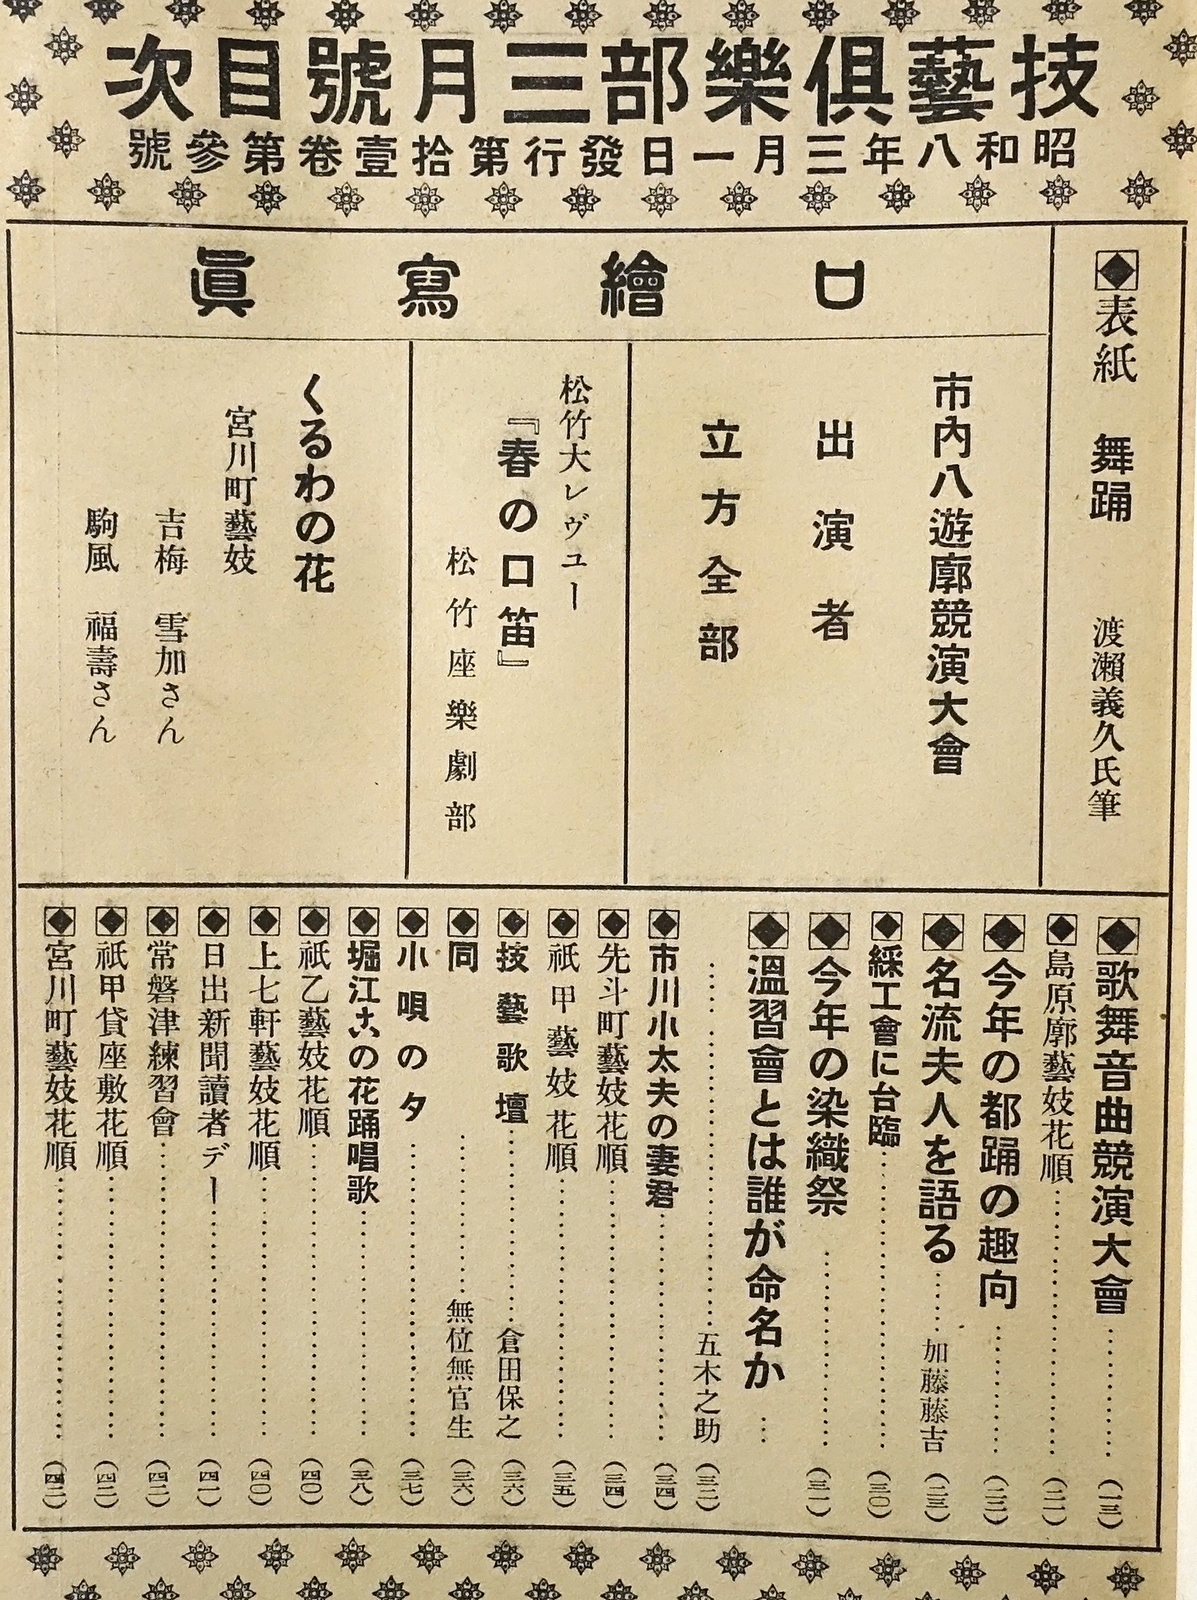 技藝俱樂部三月號目次
昭和八年三月一日發行第拾壹卷第參號
表紙 舞踊 渡瀨義久氏筆
口繪寫眞
市內八遊廓競演大會
出演者
立方全部
松竹大レヴユー
『春の口笛』
松竹座樂劇部
くるわの花
宮川町藝妓
吉梅 雪加さん
駒風 福壽さん
歌舞音曲競演大會……(一三)
島原廓藝妓花順……(二一)
今年の都踊の趣向……(二二)
名流夫人を語る……加藤藤吉(二三)
綵工會に台臨……(三〇)
今年の染織祭……(三一)
溫習會とは誰が命名か…
……五木之助(三二)
市川小太夫の妻君……(三四)
先斗町藝妓花順……(三四)
祇甲藝妓花順……(三五)
技藝歌壇……倉田保之(三六)
同……無位無官生(三六)
小唄の夕……(三七)
堀江この花踊唱歌……(三八)
祇乙藝妓花順……(四〇)
上七軒藝妓花順……(四〇)
日出新聞讀者デー……(四一)
常磐津練習會……(四二)
祇甲貸座敷花順……(四二)
宮川町藝妓花順……(四二)